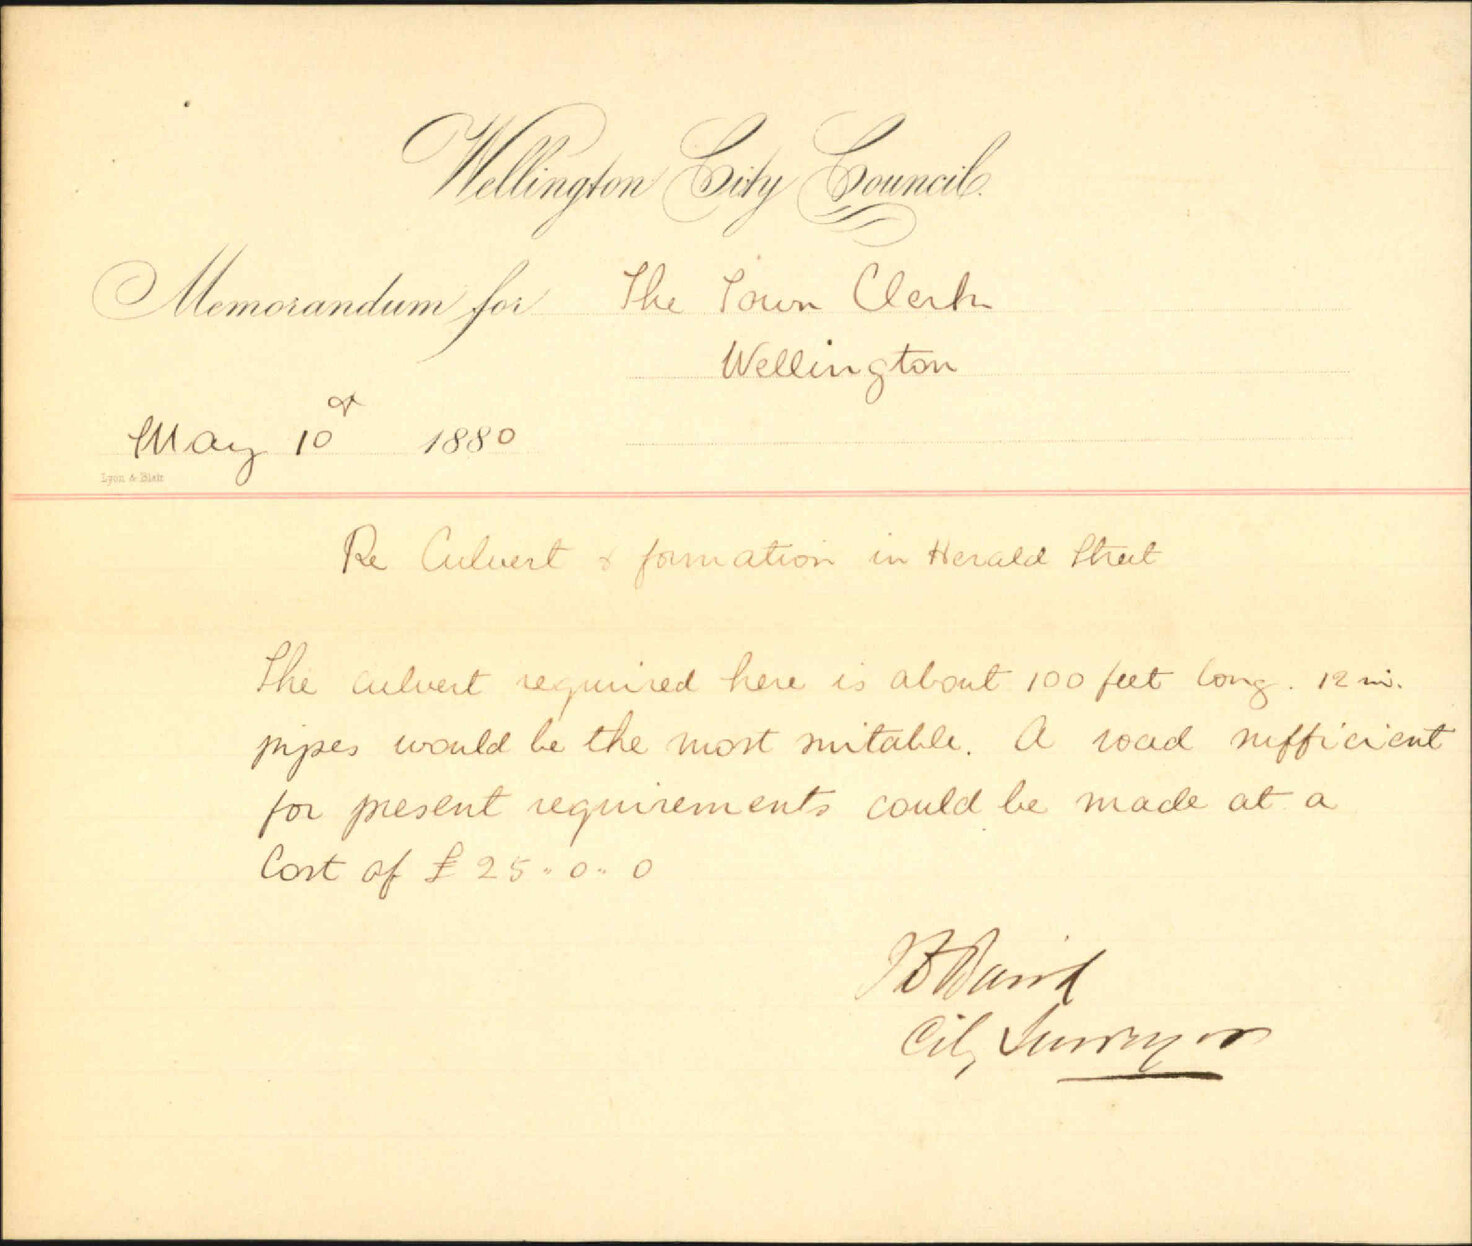 Wellington City Council.
Memorandum for The Town Clerk
Wellington
May 10th 1880
Lyon & Blair
Re Culvert & formation in Herald Street
The culvert required here is about 100 feet long. 12 in.
pipes would be the most suitable. A road sufficient
for present requirements could be made at a
Cost of £25„0„0
Baird
City Surveyor